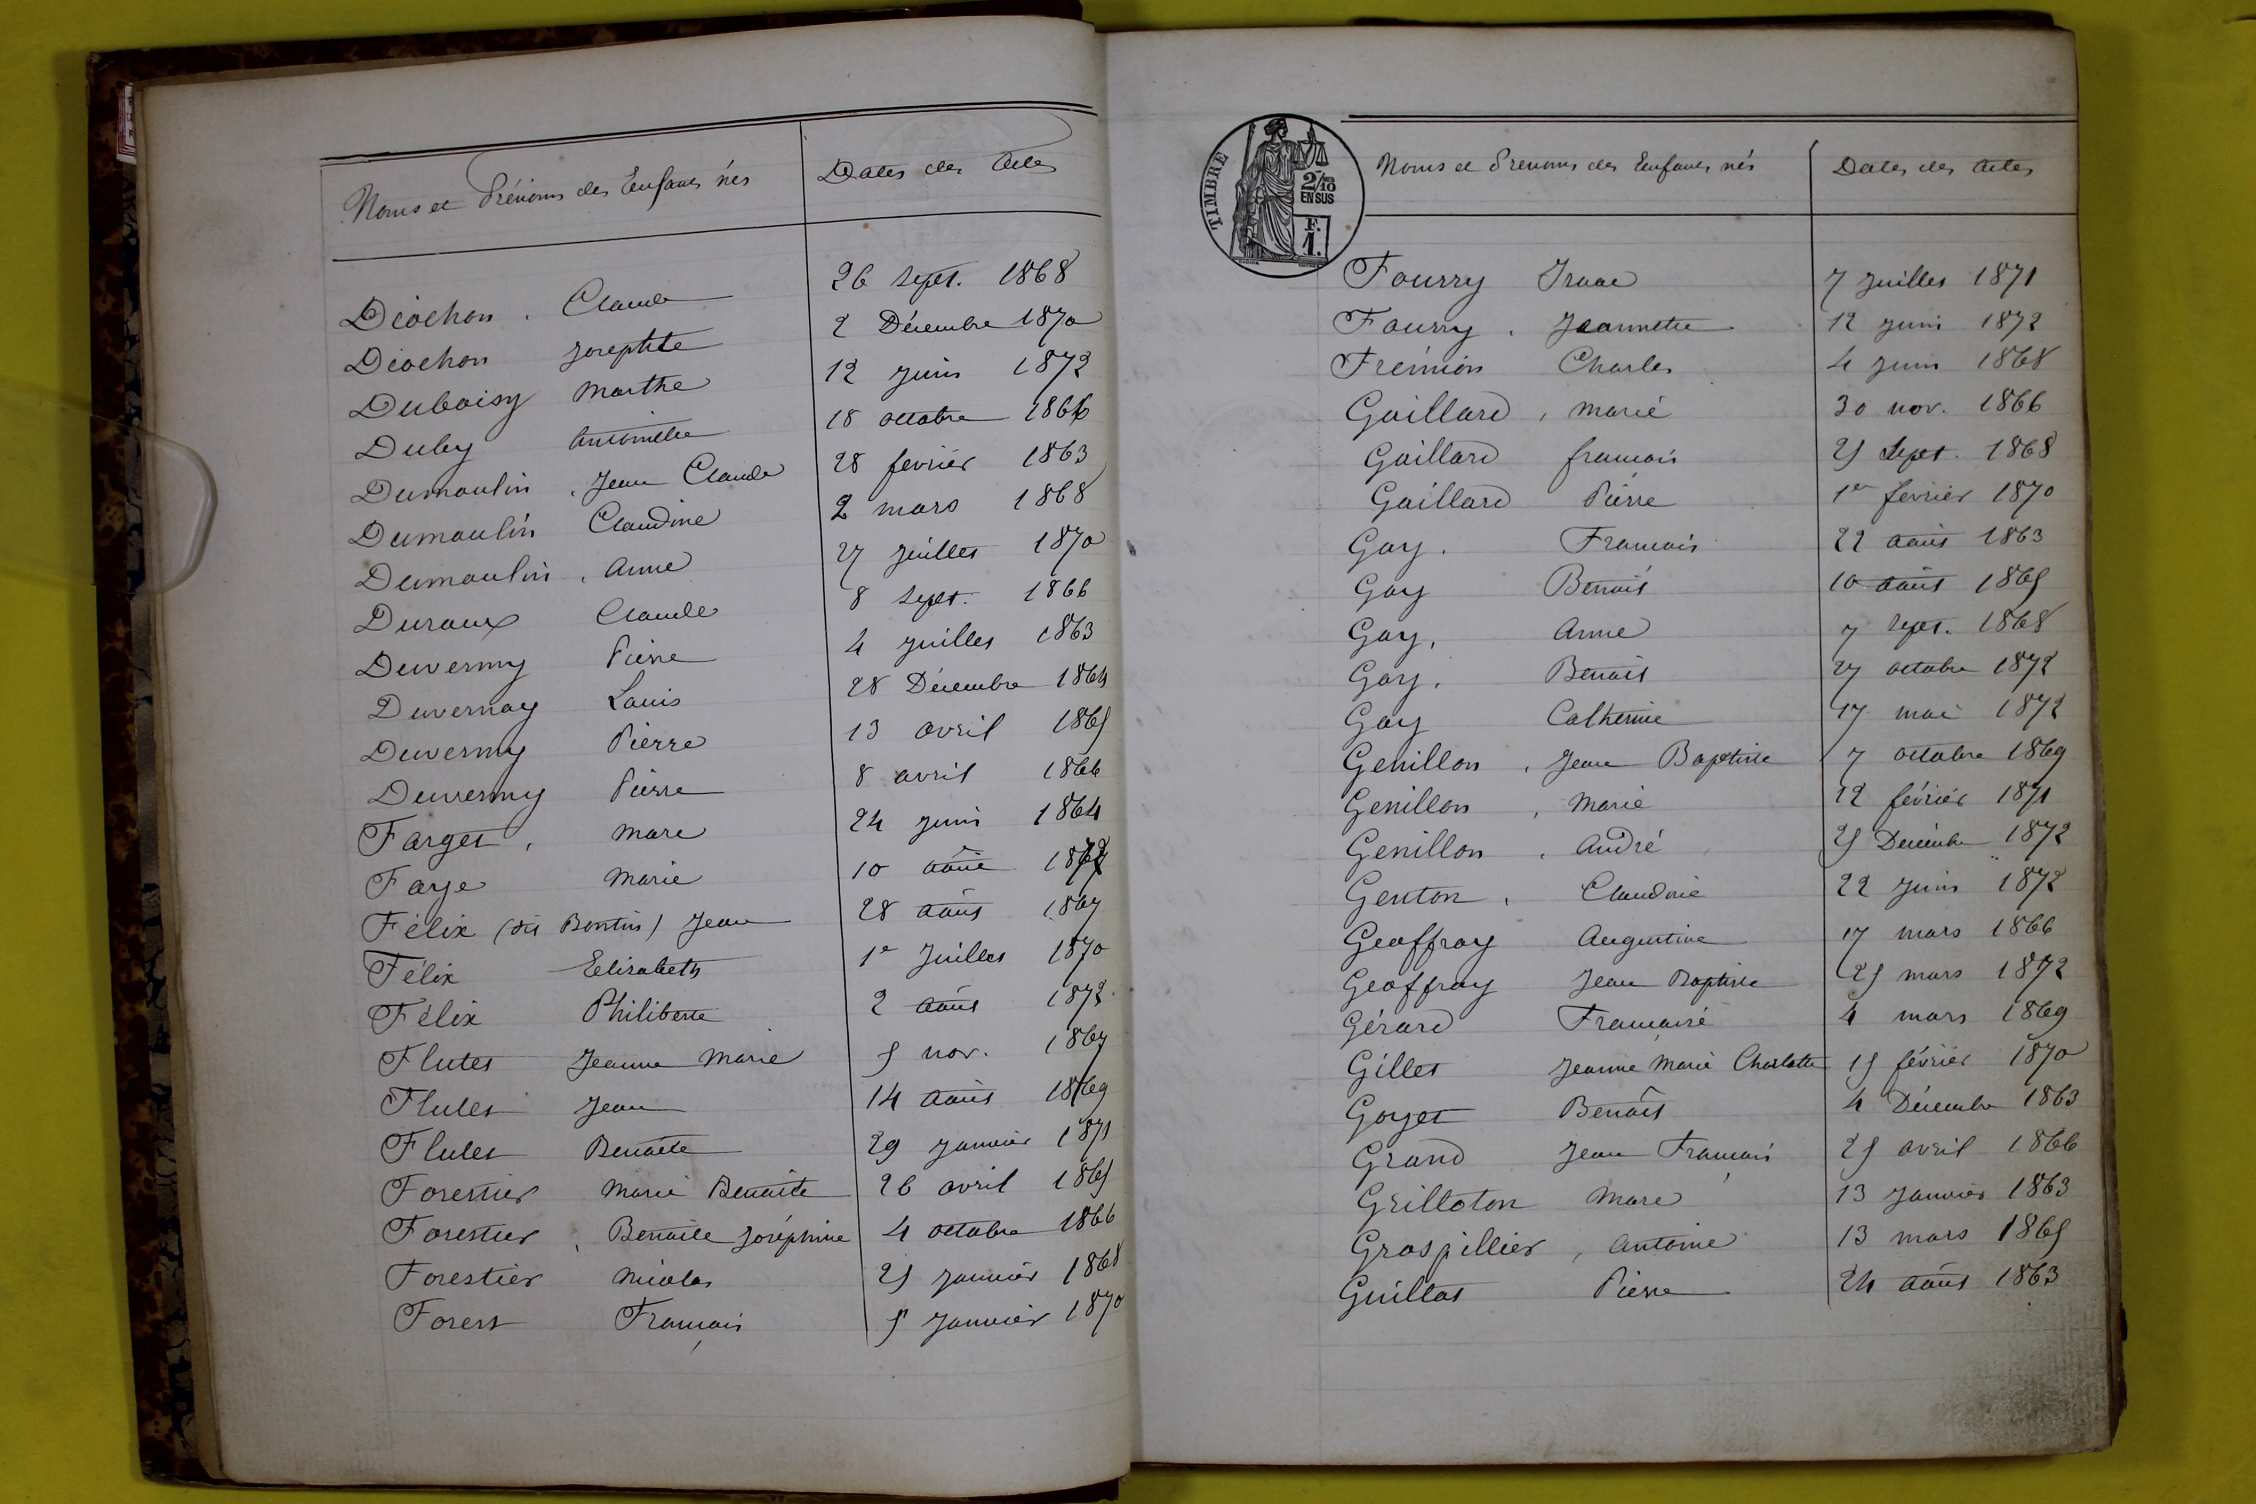 Noms et Prénoms des Enfants nés Dates des Actes
Diochon . Claude 26 sept. 1868
Diochon Josephte 2 Décembre 1870
Duboisy Marthe 12 juin 1872
Duby Antoinette 18 octobre 1866
Dumoulin , Jean Claude 28 fevrier 1863
Dumoulin Claudine 2 mars 1868
Dumoulin , Anne 27 juillet 1870
Duroux Claude 8 sept. 1866
Duvernay Pierre 4 juillet 1863
Duvernay Louis 28 Décembre 1864
Duvernay Pierre 13 avril 1865
Duvernay Pierre 8 avril 1866
Farget , Marc 24 juin 1864
Faye Marie 10 août
Félix (dit Bontin) Jean 28 août 1867
Félix Elisabeth 1er Juillet 1870
Félix Philiberte 2 août 1872
Flutet Jeanne Marie 5 nov. 1867
Flutet Jean 14 août 1869
Flutet Benoite 29 janvier 1871
Forestier Marie Benoite 26 avril 1865
Forestier , Benoite Joséphine 4 octobre 1866
Forestier Nicolas 25 janvier 1868
Forest François 5 janvier 1870
TIMBRE
2/10
EN SUS
F.
1.
Noms et Prenoms des Enfants nés Dates des Actes
Fourry Isaac 7 juillet 1871
Fourry . Jeannette 12 juin 1872
Frémion Charles 4 juin 1868
Gaillard , Marie 30 nov. 1866
Gaillard francois 25 Sept. 1868
Gaillard Pierre 1er fevrier 1870
Gay . Francois 22 août 1863
Gay Benoit 10 août 1865
Gay , Anne 7 sept. 1868
Gay , Benoit 27 octobre 1872
Gay Catherine 17 mai 1872
Genillon , Jean Baptiste 7 octobre 1869
Genillon , Marie 12 février 1871
Genillon , André 25 Decembre 1872
Genton , Claudine 22 juin 1872
Geoffray Augustine 17 mars 1866
Geoffray Jean Baptiste 25 mars 1872
Gérard Francoise 4 mars 1869
Gillet Jeanne Marie Charlotte 15 février 1870
Goyet Benoît 4 Décembre 1863
Grand Jean François 25 avril 1866
Grilloton Marc 13 janvier 1863
Grospillier , Antoine 13 mars 1865
Guillot Pierre 24 août 1863